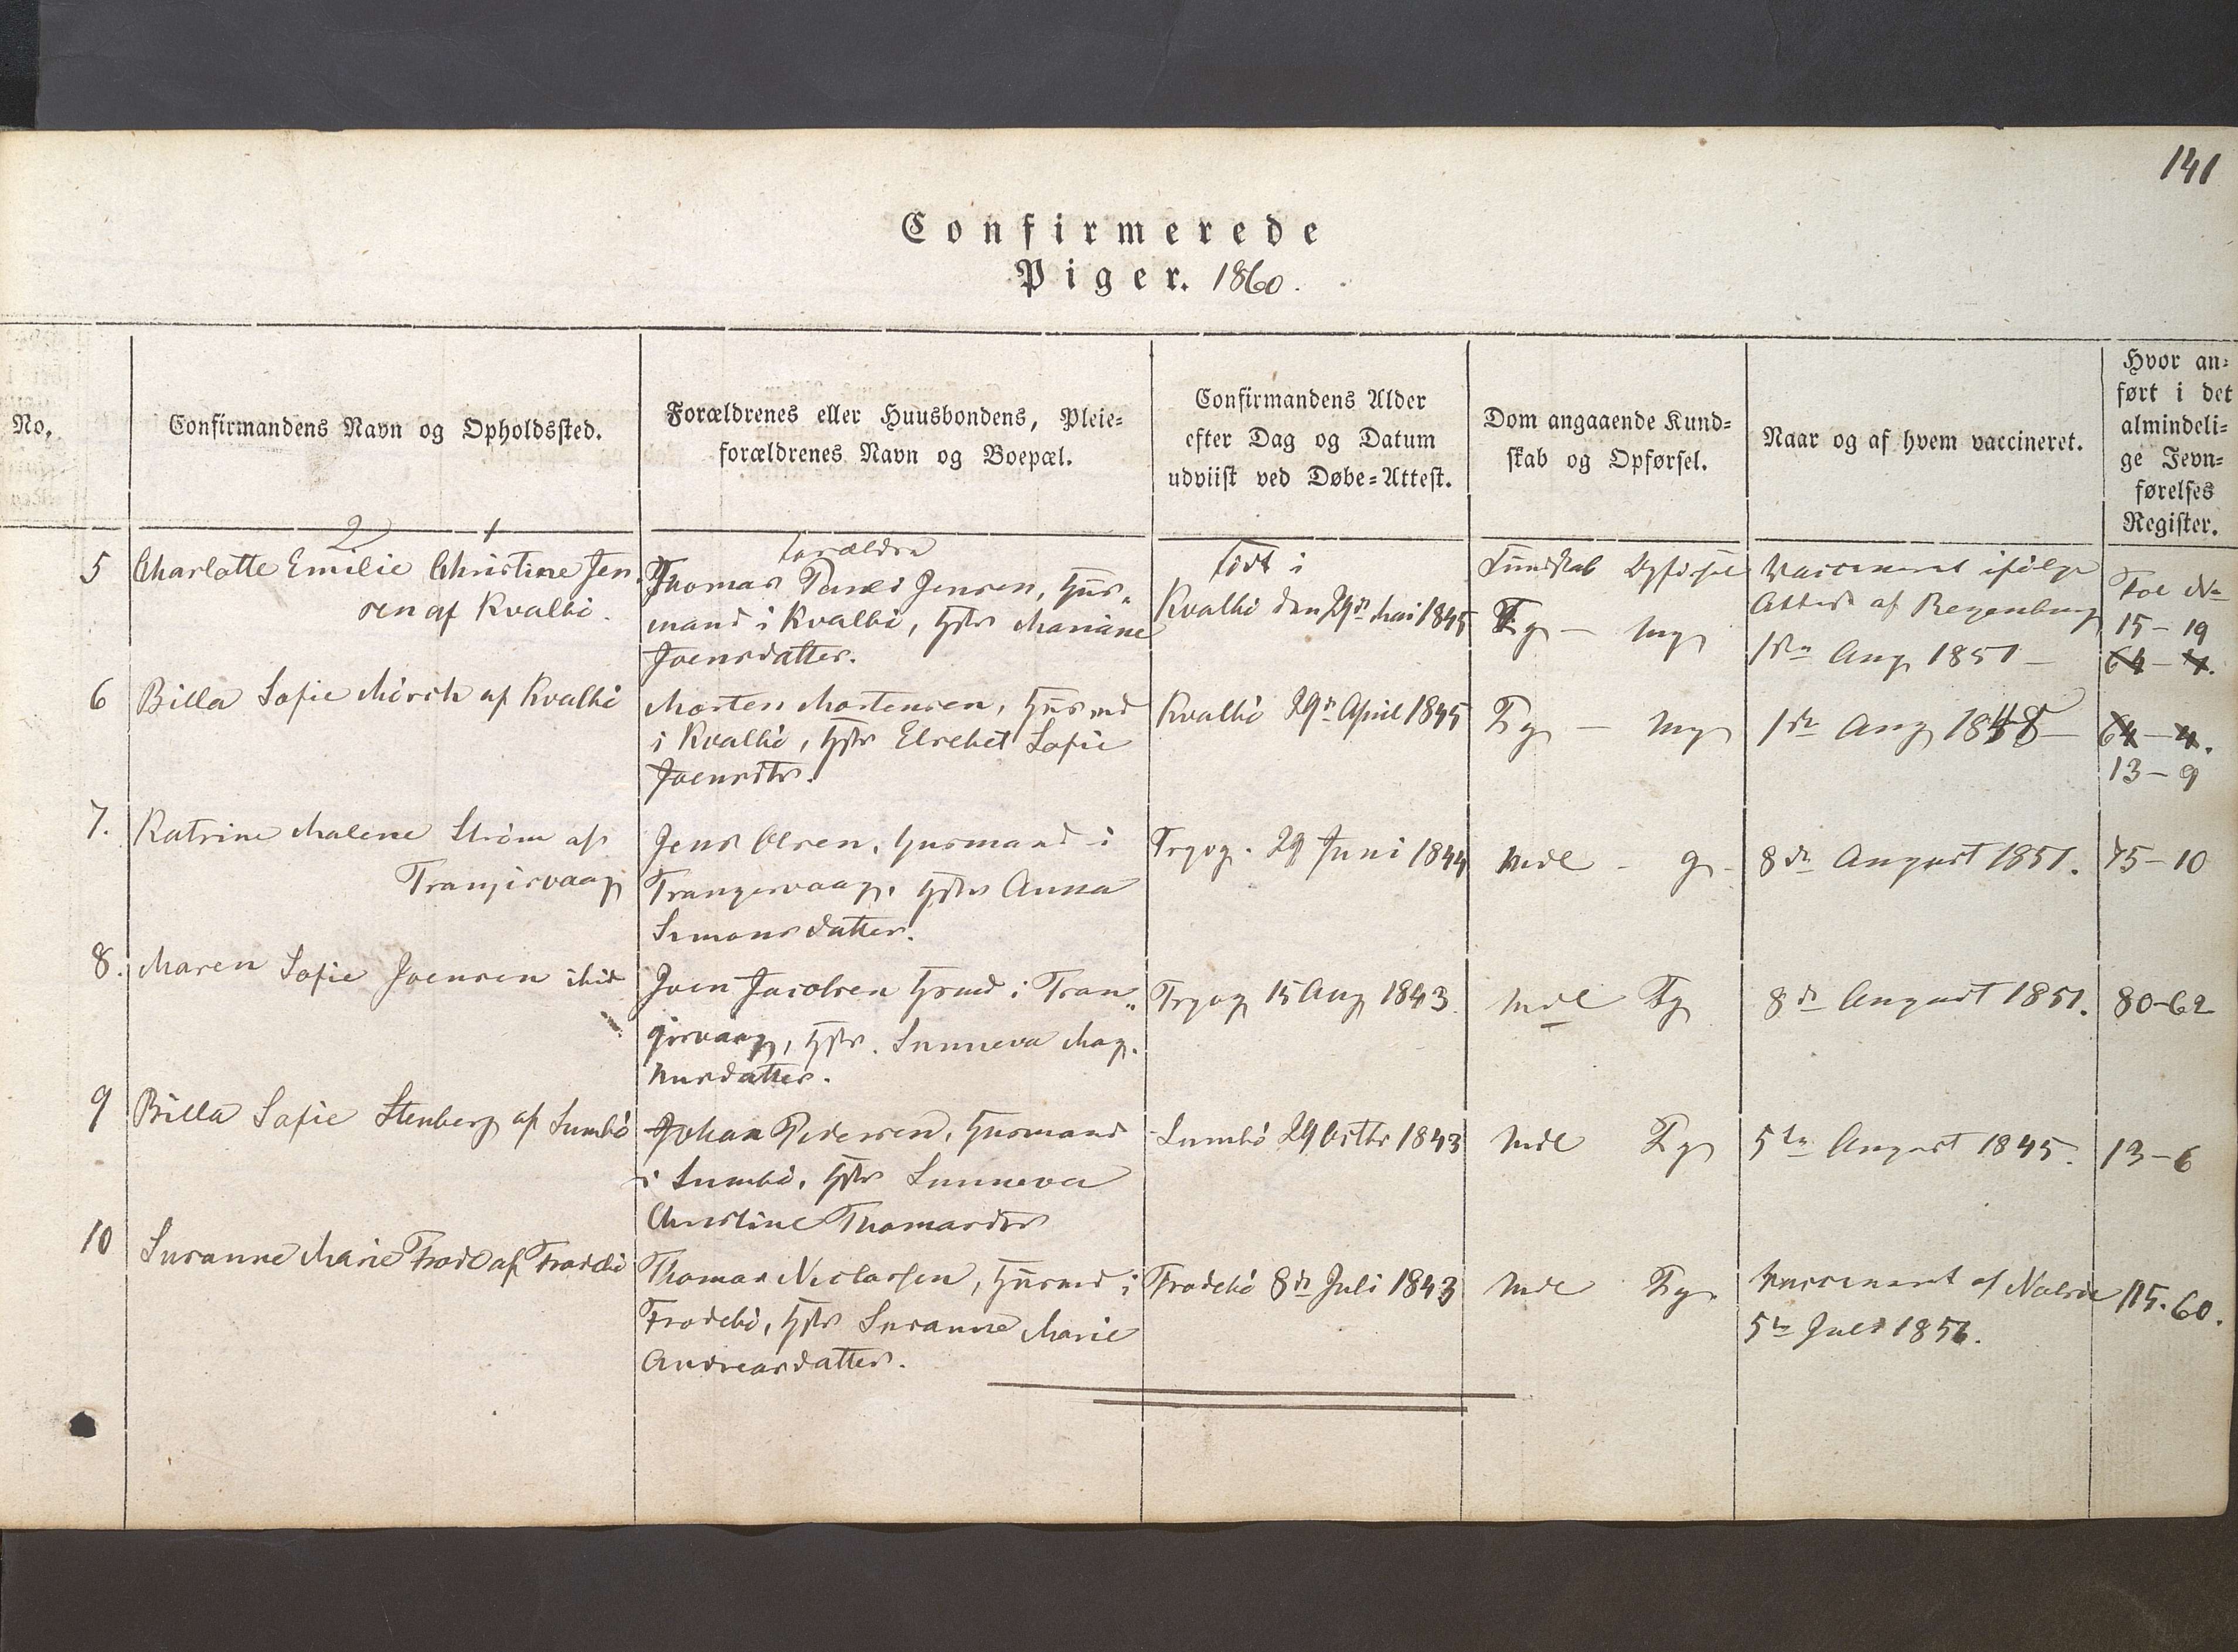 141
Confirmerede
Piger. 1860.
No.
Confirmandens Navn og Opholdssted.
Forældrenes eller Huusbondens, Pleie-
forældrenes Navn og Boepæl.
Confirmandens Alder
efter Dag og Datum
udviist ved Døbe-Attest.
Dom angaaende Kund-
skab og Opførsel.
Naar og af hvem vaccineret.
Hvor an-
ført i det
almindeli-
ge Jevn-
førelses
Register.
2 1
5
Charlotte Emilie Christine Jen
sen af Kvalbö.
Forældre
Thomas Jensen, Huus-
mand i Kvalbö, Hstr Mariane
Joensdatter.
Född i
Kvalbö den 29de Mai 1845
Kundskab Opförsel
Tg — mg
Vaccineret ifölge
Attest af Regenburg
1ste Aug 1851 —
Fol No
15 – 19
64 – 4.
6
Billa Sofie Mörch af Kvalbö
Morten Mortensen, Huusmd
i Kvalbö, Hstr Elsebet Sofie
Joensdtr.
Kvalbö 29de April 1845
Tg — mg
1ste Aug 1848 —
64 – 4.
13 – 9
7.
Katrine Malene Ström af
Trangisvaag
Jens Olsen, Husmand i
Trangisvaag, Hstr Anna
Simonsdatter.
Trgvg. 29 Juni 1844
mdl - g -
8de August 1851.
75 – 10
8.
Maren Sofie Joensen ibid
Joen Jacobsen Hsmd i Tran-
gisvaag, Hstr. Sunneva Mag-
nusdatter.
Trgvg 15 Aug 1843.
mdl Tg
8de August 1851.
80-62
9
Billa Sofie Stenberg af Sumbö
Johan Pedersen, Husmand
i Sumbö, Hstr Sunneva
Christine Thomasdtr
Sumbö 29 Octbr 1843
mdl Tg
5te August 1845.
13 – 6
10
Susanne Marie Frode af Frodebö
Thomas Niclassen, Huusmd i
Frodebö, Hstr Susanne Marie
Andreasdatter.
Frodebö 8de Juli 1843
mdl Tg.
Vaccineret af Nolsöe
5te Juli 1856.
115. 60.